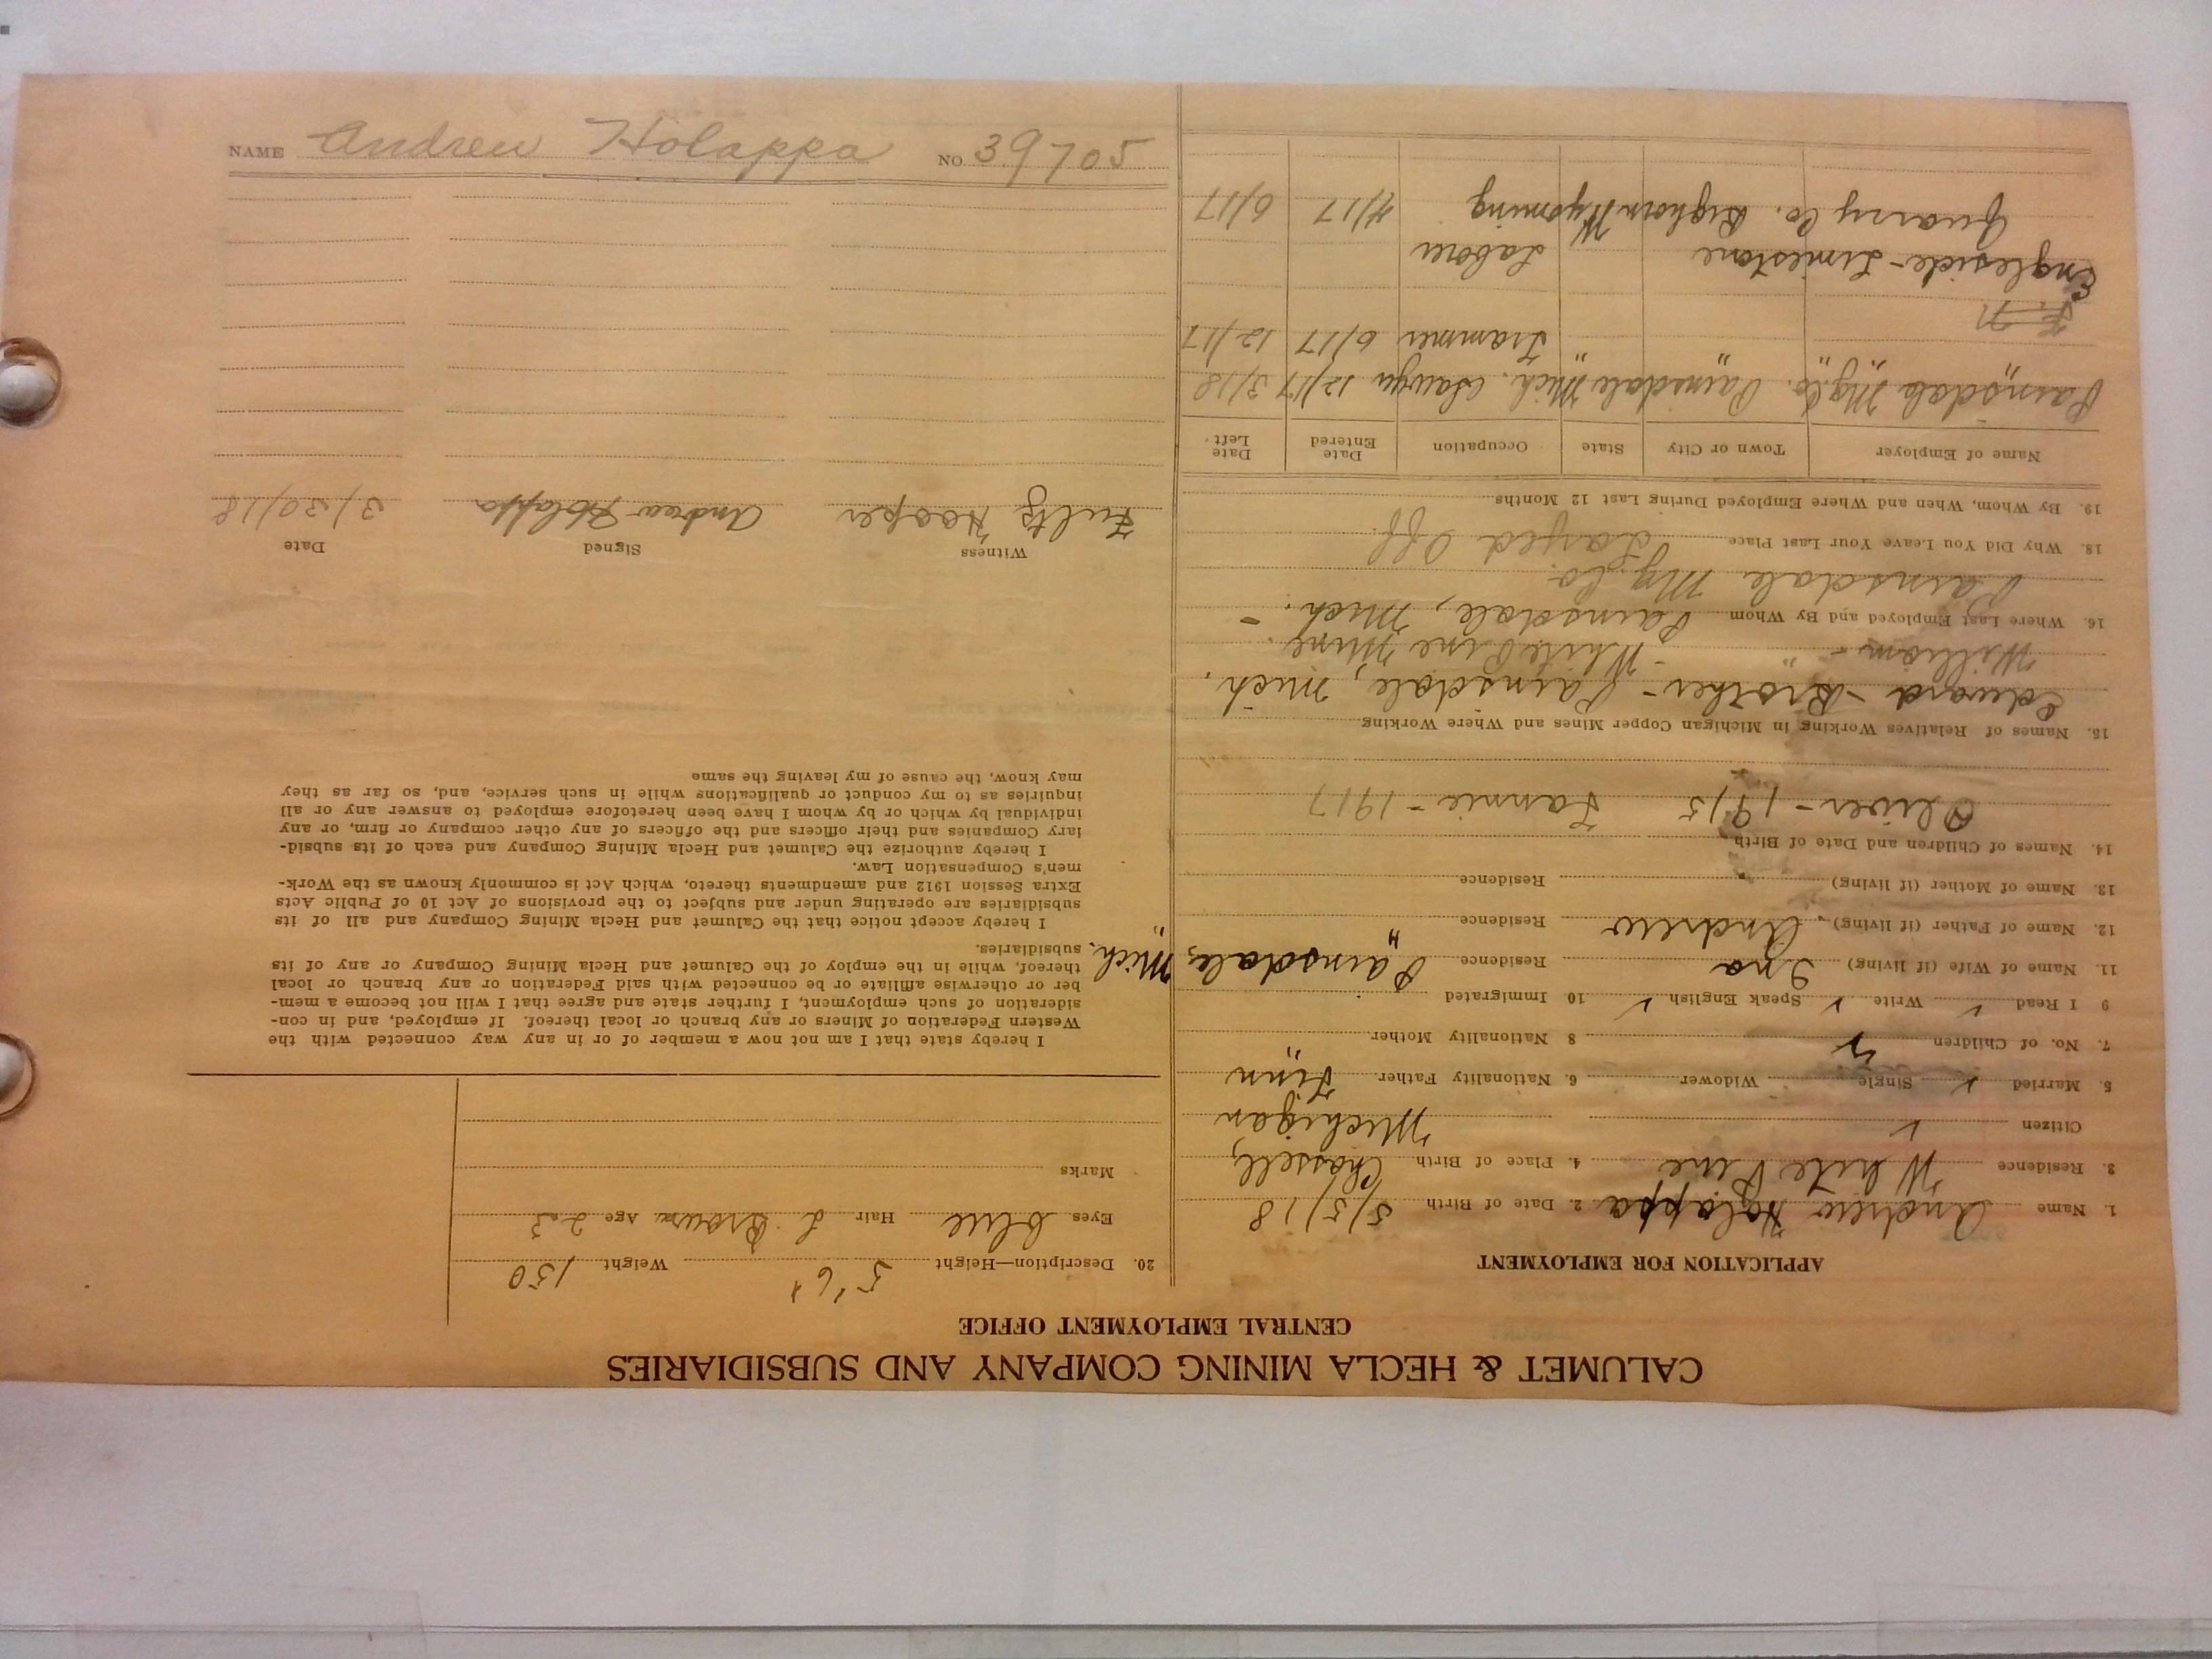 CALUMET & HECLA MINING COMPANY AND SUBSIDIARIES
CENTRAL EMPLOYMENT OFFICE
APPLICATION FOR EMPLOYMENT
1. Name Andrew Holappa 2. Date of Birth 5/5/18
3. Residence White Pine 4. Place of Birth Chassell,
Citizen ✓ Michigan
5. Married ✓ Single Widower 6. Nationality Father Finn
7. No. of Children 8 Nationality Mother "
9 I Read ✓ Write ✓ Speak English ✓ 10 Immigrated
11. Name of Wife (if living) Ina Residence Painsdale, Mich.
12. Name of Father (if living) Andrew Residence " "
13. Name of Mother (if living) Residence
14. Names of Children and Date of Birth
Oliver - 1915 Fannie - 1917
15. Names of Relatives Working in Michigan Copper Mines and Where Working
Edward - Brother - Painsdale, Mich.
William - " - White Pine Mine.
16. Where Last Employed and By Whom Painsdale, Mich. -
Painsdale Mg. Co.
18. Why Did You Leave Your Last Place Layed Off.
19. By Whom, When and Where Employed During Last 12 Months
Name of Employer Town or City State Occupation Date Entered Date Left
Painsdale Mg. Co. Painsdale Mich. 12/17 3/18
" " " " Trammer 6/17 12/17
Engleside - Limestone Laborer
Quarry Co. Bighorn Wyoming 4/17 6/17
20. Description—Height 5' 6" Weight 150
Eyes blue Hair L Brown Age 23
Marks
I hereby state that I am not now a member of or in any way connected with the
Western Federation of Miners or any branch or local thereof. If employed, and in con-
sideration of such employment, I further state and agree that I will not become a mem-
ber or otherwise affiliate or be connected with said Federation or any branch or local
thereof, while in the employ of the Calumet and Hecla Mining Company or any of its
subsidiaries.
I hereby accept notice that the Calumet and Hecla Mining Company and all of its
subsidiaries are operating under and subject to the provisions of Act 10 of Public Acts
Extra Session 1912 and amendments thereto, which Act is commonly known as the Work-
men's Compensation Law.
I hereby authorize the Calumet and Hecla Mining Company and each of its subsid-
iary Companies and their officers and the officers of any other company or firm, or any
individual by which or by whom I have been heretofore employed to answer any or all
inquiries as to my conduct or qualifications while in such service, and, so far as they
may know, the cause of my leaving the same
Witness Signed Date
Hooper Andrew Holappa 3/30/18
NAME Andrew Holappa NO. 39705